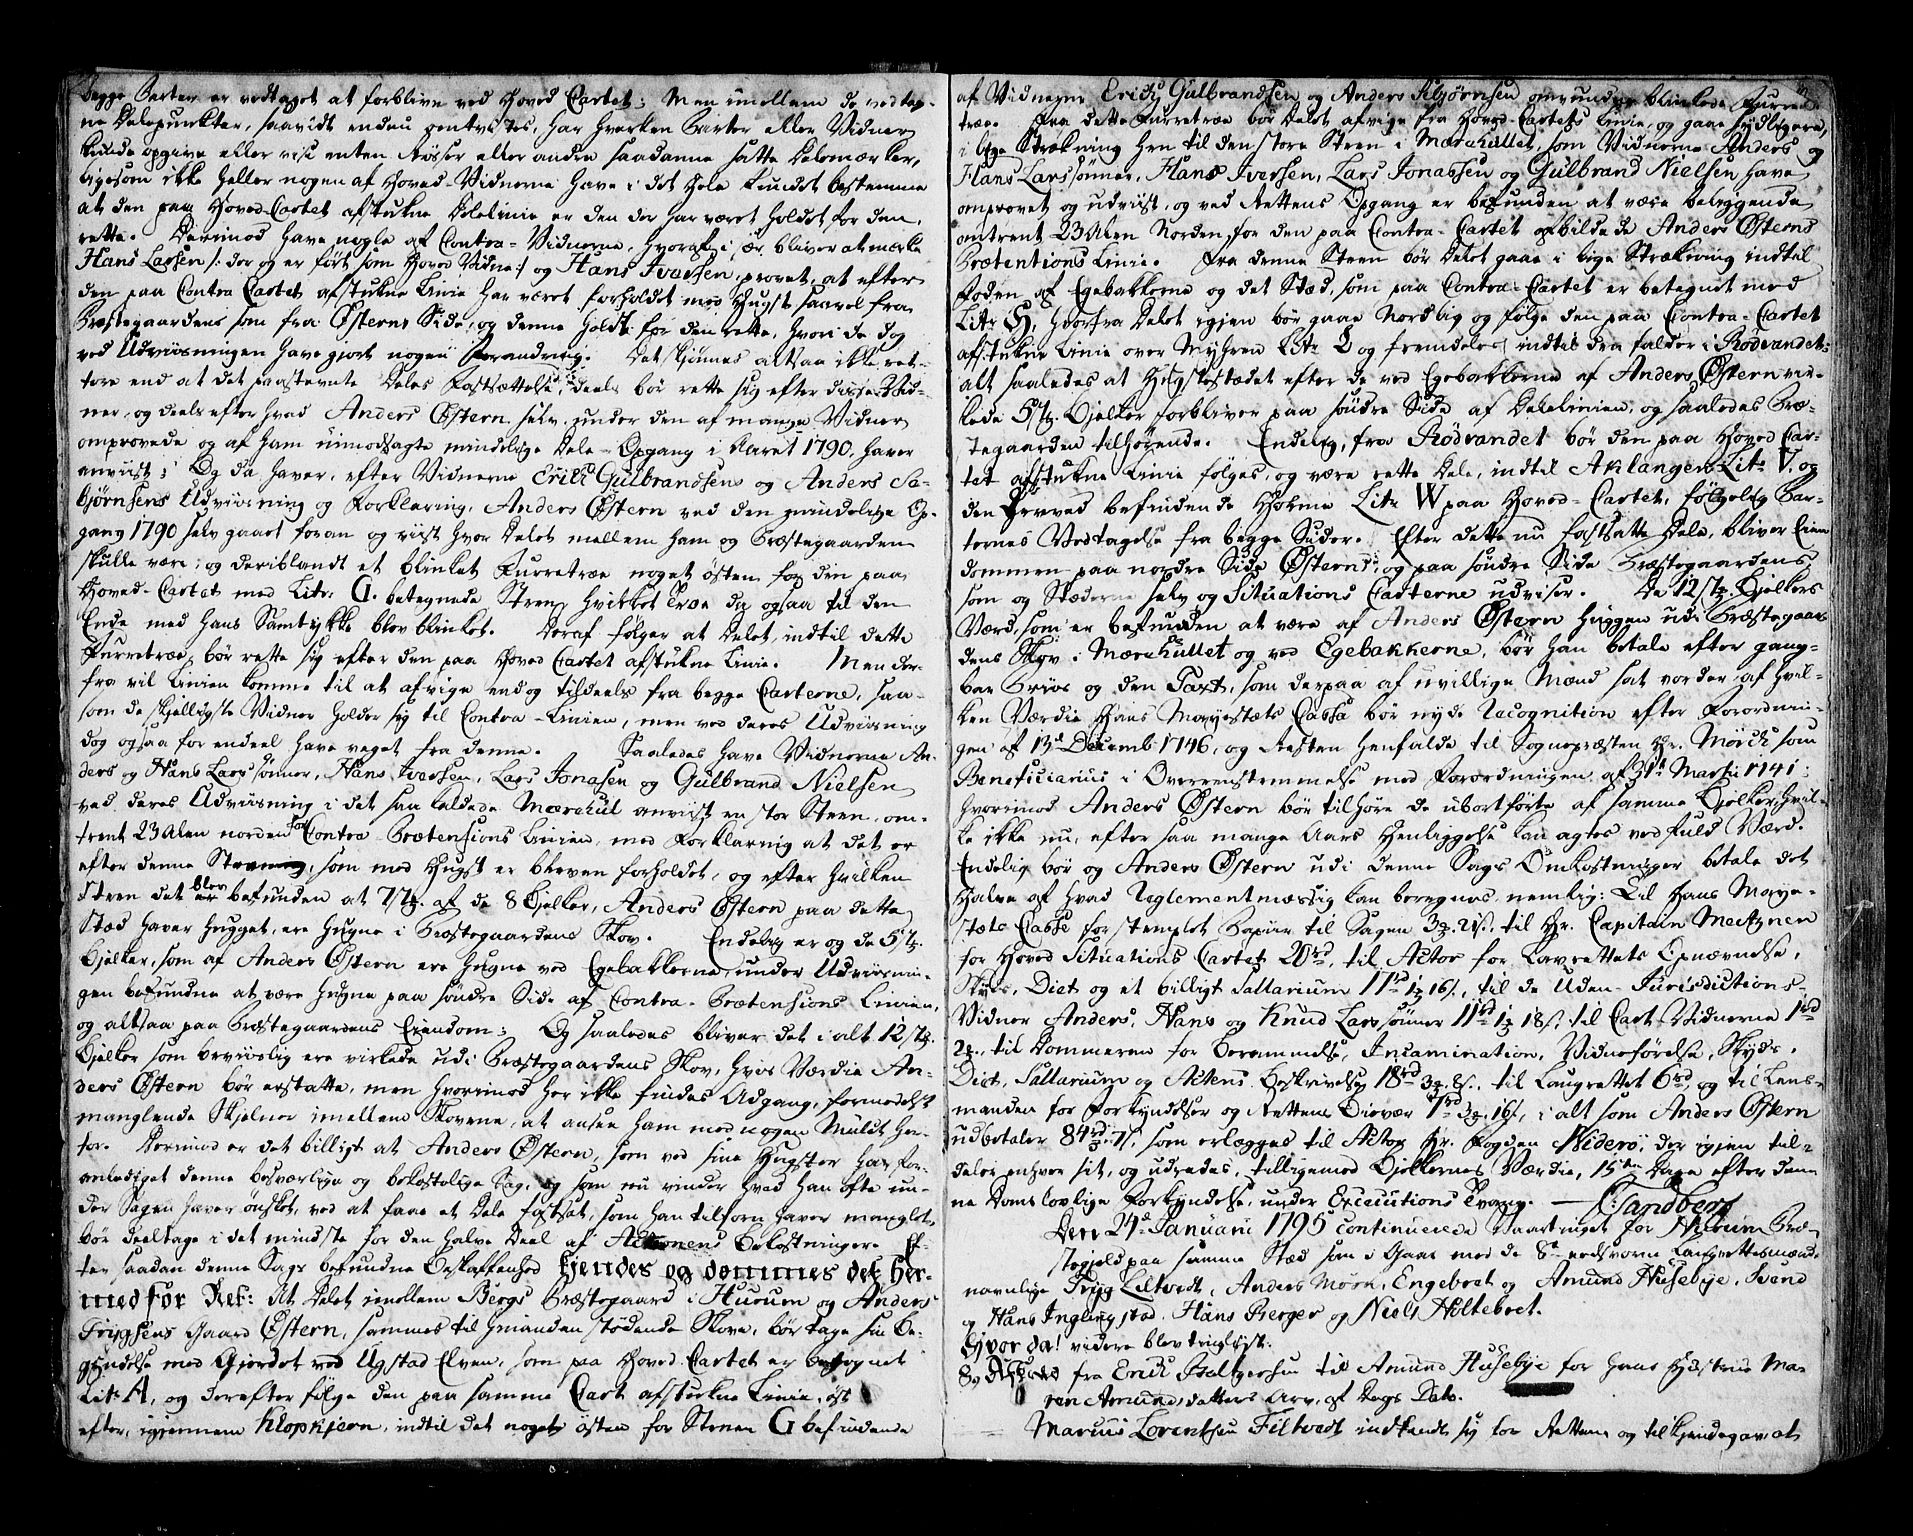 Begge Parter er vedtaget at forblive ved Hoved Cartet; Men imellem de vedtag-
ne Delepunkter, saavidt endnu omtvistes, har hverken Parter eller Vidner
kunde opgive eller vise enten Røser eller andre saadanne satte Delemærker,
ligesom ikke heller nogen af Hoved-Vidnerne have i det Hele kundet bestemme
at den paa Hoved-Cartet afstukne Delelinie er den der har været holdet for den
rette. Derimod have nogle af Contra-Vidnerne, hvoraf i sær bliver at mærke
Hans Larsen /: der og er ført som Hoved Vidne :/ og Hans Iversen, provet, at efter
den paa Contra Cartet afstukne Linie har været forholdet med Hugst saavel fra
Præstegaardens som fra Østerns Side, og denne holdt for den rette, hvori de dog
ved Udviisningen have gjort nogen Forandring. Det skjønnes altsaa ikke ret-
tere end at det paastevnte Deles Fastsættelse, deels bør rette sig efter disse Vid-
ner, og deels efter hvad Anders Østern selv, under den af mange Vidner
omprovede og af ham uimodsagte mindelige Dele-Opgang i Aaret 1790, haver
anviist; Og da haver, efter Vidnerne Erich Gulbrandsens og Anders As-
bjørnsens Udviisning og Forklaring, Anders Østern ved den mindelige Op-
gang 1790 selv gaaet foran og viist hvor Delet mellem ham og Præstegaarden
skulle være; og deriblandt et blinket Furretræe noget østen for den paa
Hoved-Cartet med Litr. G. betegnede Steen, hvilket Træe da ogsaa til den
Ende med hans Samtykke blev blinket. Deraf følger at Delet, indtil dette
Furretræe, bør rette sig efter den paa Hoved Cartet afstukne Linie. Men der-
fra vil Linien komme til at afvige endog tildeels fra begge Carterne, saa-
som de skjelligste Vidner holder sig til Contra-Linien, men ved deres Udviisning
dog ogsaa for endeel have veget fra denne. Saaledes have Vidnerne An-
ders og Hans Larssønner, Hans Iversen, Lars Jonasen og Gulbrand Nielsen
ved deres Udviisning i det saa kaldede Mærehul anviist en stor Steen, om-
trent 23 Alen norden for Contra-Prætensions Linien, med Forklaring at det er
efter denne Steen, som med Hugst er bleven forholdet, og efter hvilken
Steen det blev befunden at 7 /stk. af de 8 Bjelker, Anders Østern paa dette
Stæd haver hugget, ere hugne i Præstegaardens Skov. Endelig er og de 5 stk.
Bjelker, som af Anders Østern ere hugne ved Egebakkerne, under Udviisnin-
gen befundne at være hugne paa søndre Side af Contra-Prætensions Linien,
og altsaa paa Præstegaardens Eiendom; Og saaledes bliver det i alt 12 stk.
Bjelker som beviislig ere virkede udi Præstegaardens Skov, hvis Værdie An-
ders Østern bør erstatte, men hvorimod her ikke findes Adgang, formedelst
manglende Skjelner imellem Skovene, at ansee ham med nogen Mulct her-
for. Derimod er det billigt at Anders Østern, som ved sine Hugster har for-
anlediget denne besværlige og bekostelige Sag, og som nu vinder hvad han ofte un-
der Sagen haver ønsket, ved at faae et Dele fastsat, som han tilforn haver manglet,
bør deeltage i det mindste for den halve Deel af Actionens Bekostninger. Ef-
ter saadan denne Sags befundne Beskaffenhed kjendes og dømmes det her-
med for Ret: At Delet imellem Bergs Præstegaard i Hurum og Anders
Trygsens Gaard Østern, sammes til hinanden stødende Skove, bør tage sin Be-
gyndelse med Gjerdet ved Ugstad Elven, som paa Hoved Cartet er betegnet
Litr. A, og derefter følge den paa samme Cart afstukne Linie, øst
efter, igjennem Klopkjern, indtil det noget østen for Stenen G befindende
af Vidnerne Erich Gulbrandsen og Anders Asbjørnsen omvundne blinkede Furre-
træe. Fra dette Furretræe bør Delet afvige fra Hoved-Cartets Linie, og gaae sydligere,
i lige Strækning hen til den store Steen i Mærehullet, som Vidnerne Anders og
Hans Larssønner, Hans Iversen, Lars Jonassen og Gulbrand Nielsen have
omprovet og udviist, og ved Rettens Opgang er befunden at være beliggende
omtrent 23 Alen Norden for den paa Contra-Cartet afbildede Anders Østerns
Prætentions Linie. Fra denne Steen bør Delet gaae i lige Strækning indtil
Foden af Egebakkerne og det Stæd, som paa Contra-Cartet er betegnet med
Litr. H, hvorfra Delet igjen bør gaae Nordlig og følge den paa Contra-Cartet
afstukne Linie over Myhren Litr. L og fremdeles indtil den falder i Rødvandet;
alt saaledes at Hugstestædet efter de ved Egebakkerne af Anders Østern vir-
kede 5 stk. Bjelker forbliver paa søndre Side af Delelinien, og saaledes Præ-
tegaarden tilhørende. Endelig, fra Rødvandet bør den paa Hoved Car-
tet afstukne Linie følges, og være rette Dele, indtil Aklangen Litr. V. og
den herved befindende Hørne Litr. W paa Hoved-Cartet, følgelig Par-
ternes Vedtagelse fra begge Sider. Efter dette nu fastsatte Dele, bliver Eien-
dommen paa nordre Side Østerns, og paa søndre Side Præstegaardens
som og Stæderne selv og Situations Carterne udviser. De 12 stk. Bjelkers
Værd, som er befunden at være af Anders Østern huggen udi Præstegaar-
dens Skov i Mærehullet og ved Egebakkerne, bør han betale efter gang-
bar Priis og den Taxt, som derpaa af uvillige Mænd sat vorder, af hvil-
ken Værdie Hans Mayestæts Cassa bør nyde Recognition efter Forordnin-
gen af 13de Decemb: 1746, og Resten henfalde til Sognepræsten Hr. Mørch som
Beneficiarius i Overeenstemmelse med Forordningen af 31te Martii 1741;
hvorimod Anders Østern bør tilhøre de ubortførte af samme Bjelker, hvil-
ke ikke nu, efter saa mange Aars Henliggelse kan agtes ved fuld Værd.
Endelig bør og Anders Østern udi denne Sags Omkostninger betale det
Halve af hvad Reglementmæssig kan beregnes, nemlig: Til Hans Maye-
stæts Casse for stemplet Papiir til Sagen 3 21 s., til Hr. Capitain Mechynen
for Hoved Situations Cartet 20 rd, til Actor for Lavrettets Opnævnelse,
Skyds, Diet og et billigt Sallarium 11 rd 1 16 s., til de Uden-Jurisdictions-
Vidner Anders, Hans og Knud Larssønner 11 rd 1 18 s., til Cart-Vidnerne 1 rd
2, til Dommeren for Berammelse, Incamination, Vidneførelse, Skyds,
Diet, Sallarium og Actens Beskrivelse 18 rd 3 8 s., til Laugrettet 6 rd, og til Lens-
manden for Forkyndelser og Rettens Bievær 7 rd 3 16 s., i alt som Anders Østern
udbetaler 84 rd 7 s., som erlægges til Actor Hr. Fogden Niderö, der igjen til-
deler enhver sit, og udredes, tilligemed Bjelkernes Værdie, 15ten Dage efter den-
ne Doms lovlige Forkyndelse, under Executions Tvang. — C: Sandberg
Den 24de Januarii 1795 continuerede Vaartinget for Hurum Præ-
stegjeld paa samme Stæd som i Gaar med de 8te eedsvorne Laugrettesmænd,
navnlige Tryg Liltvedt, Anders Mørk, Engebret og Amund Husebye, Svend
og Hans Inglingstad, Hans Berger og Niels Holtebret.
Hvor da! videre blev tinglyst:
8, Afkald fra Erich Halvorsen til Amund Husebye for hans Hustrue Ma-
ren Amundsdatters Arv, af Dags Dato.
Marius Lorentsen Filtvedt indfandt sig for Retten og tilkjendegav, at